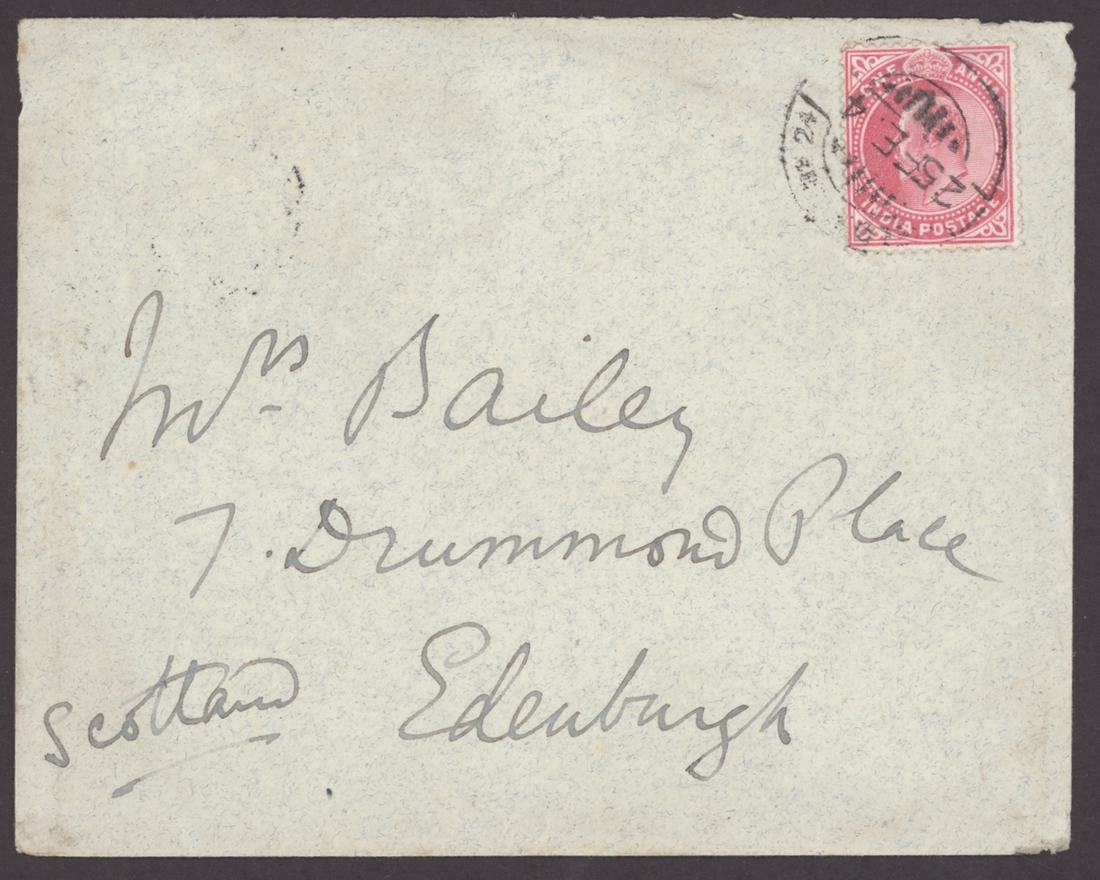 ONE ANNA
INDIA POSTAGE
25 FE
Mrs Bailey
7. Drummond Place
Edenburgh
Scotland